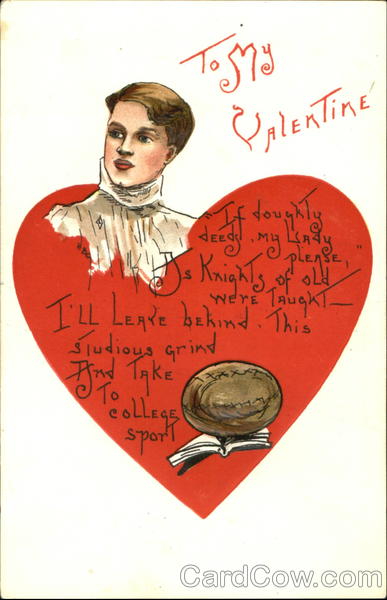 To My
Valentine
"If doughty
deeds, my Lady
please,"
As Knights of old
were taught—
I'll Leave behind. This
studious grind
And Take
To college
sport
CardCow.com